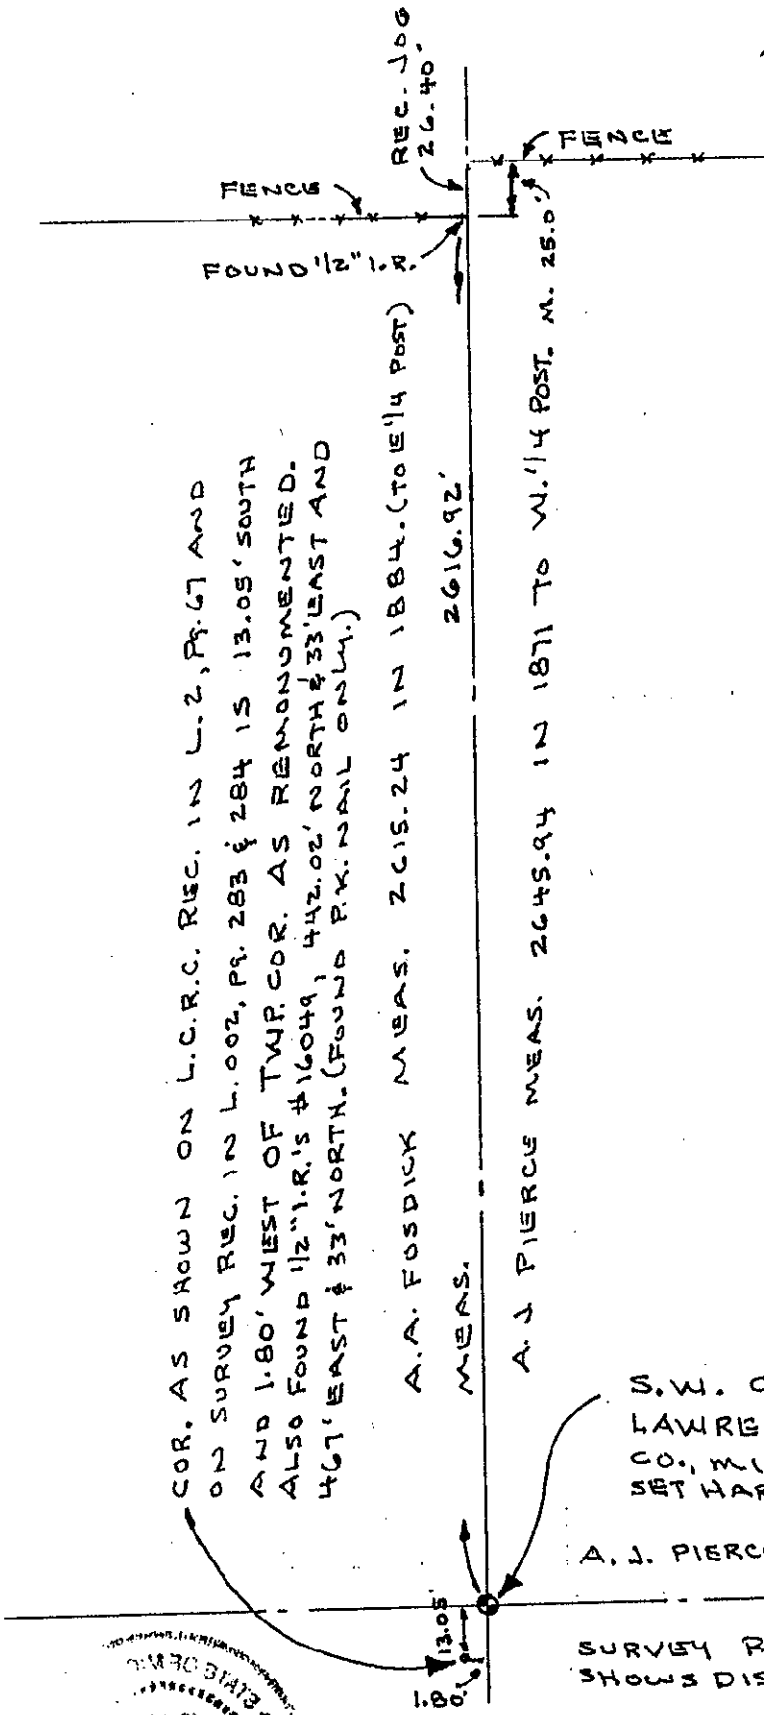 REC. JOG
26.40'
FENCE
FENCE
FOUND 1/2" I.R.
COR. AS SHOWN ON L.C.R.C. REC. IN L. 2, Pg. 67 AND
ON SURVEY REC. IN L. 002, Pg. 283 & 284 IS 13.05' SOUTH
AND 1.80' WEST OF TWP. COR. AS REMONUMENTED.
ALSO FOUND 1/2" I.R.'s #16049, 442.02' NORTH & 33' EAST AND
467' EAST & 33' NORTH. (FOUND P.K. NAIL ONLY.)
A.A. FOSDICK MEAS. 2615.24 IN 1884. (TO E 1/4 POST)
MEAS. 2616.92'
A.J. PIERCE MEAS. 2645.94 IN 1871 TO W. 1/4 POST. M. 25.0'
S.W.
LAWRE
CO.,
SET HAR
A.J. PIERC
13.05'
1.80'
SURVEY R
SHOWS DIS